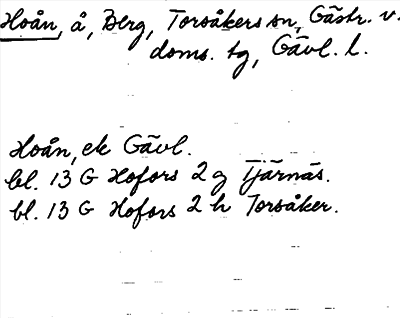 Hoån, å, Berg, Torsåkers sn, Gästr. v.
doms. tg, Gävl. l.
Hoån, ek Gävl.
bl. 13 G Hofors 2 g Tjärnäs.
bl. 13 G Hofors 2 h Torsåker.